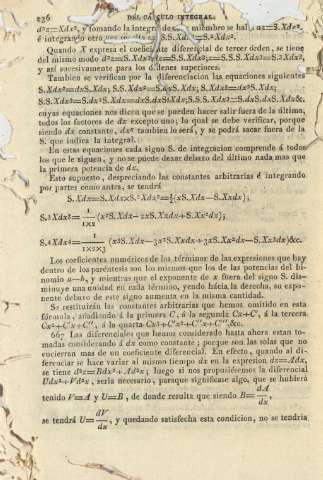 236 DEL CÁLCULO INTEGRAL.
d²z=Xdx², y tomando la integral de miembro se halla dz=S.Xdx²,
é integrando otro
Quando X expresa el coeficiente diferencial de tercer órden, se tiene
del mismo modo
y así sucesivamente para los órdenes superiores.
Tambien se verifican por la diferenciacion las equaciones siguientes
S.Xdx²=dxS.Xdx; S.S.Xdx²=S.dxS.Xdx; S.Xdx³=dx²S.Xdx;
cuyas equaciones nos dicen que se pueden hacer salir fuera de la última,
todos los factores de dx excepto uno; la qual se debe verificar, porque
siendo dx constante, dx² tambien lo será, y se podrá sacar fuera de la
S. que indica la integral.
En estas equaciones cada signo S. de integracion comprende á todos
los que le siguen, y no se puede dexar debaxo del último nada mas que
la primera potencia de dx.
Esto supuesto, despreciando las constantes arbitrarias é integrando
por partes como antes, se tendrá
S.Xdx=S.Xdx
S.²Xdx²=(xS.Xdx—S.Xxdx);
S.³Xdx³=1/1×2 (x²S.Xdx—2xS.Xxdx+S.Xx²dx);
S.⁴Xdx⁴=1/1×2×3 (x³S.Xdx—3x²S.Xxdx+3xS.Xx²dx—S.Xx³dx)&c.
Los coeficientes numéricos de los términos de las expresiones que hay
dentro de los paréntesis son los mismos que los de las potencias del bi-
nomio a—b, y mientras que el exponente de x fuera del signo S. dis-
minuye una unidad en cada término, yendo hácia la derecha, su expo-
nente debaxo de este signo aumenta en la misma cantidad.
Se restituirán las constantes arbitrarias que hemos omitido en esta
fórmula, añadiendo á la primera C, á la segunda Cx+C', á la tercera
Cx²+C'x+C'', á la quarta Cx³+C'x²+C''x+C''',&c.
667 Las diferenciales que hemos considerado hasta ahora estan to-
madas considerando á dx como constante; porque son las solas que no
encierran mas de un coeficiente diferencial. En efecto, quando al di-
ferenciar se hace variar al mismo tiempo dx en la expresion dz=Adx,
se tiene d²z=Bdx²+Ad²x; luego si nos propusiésemos la diferencial
Udx²+Vd²x, sería necesario, paraque significase algo, que se hubiera
tenido V=A y U=B, de donde resulta que siendo B=dA/dx,
se tendrá U=dV/dx, y quedando satisfecha esta condicion, no se tendria